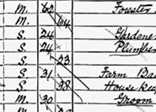 M. 62 Forester
M. 64
S. 24 Gardene
S. 24 Plumber
S. 23
S. 31 Farm Ba
S. 28 House Kee
M. 30 Groom